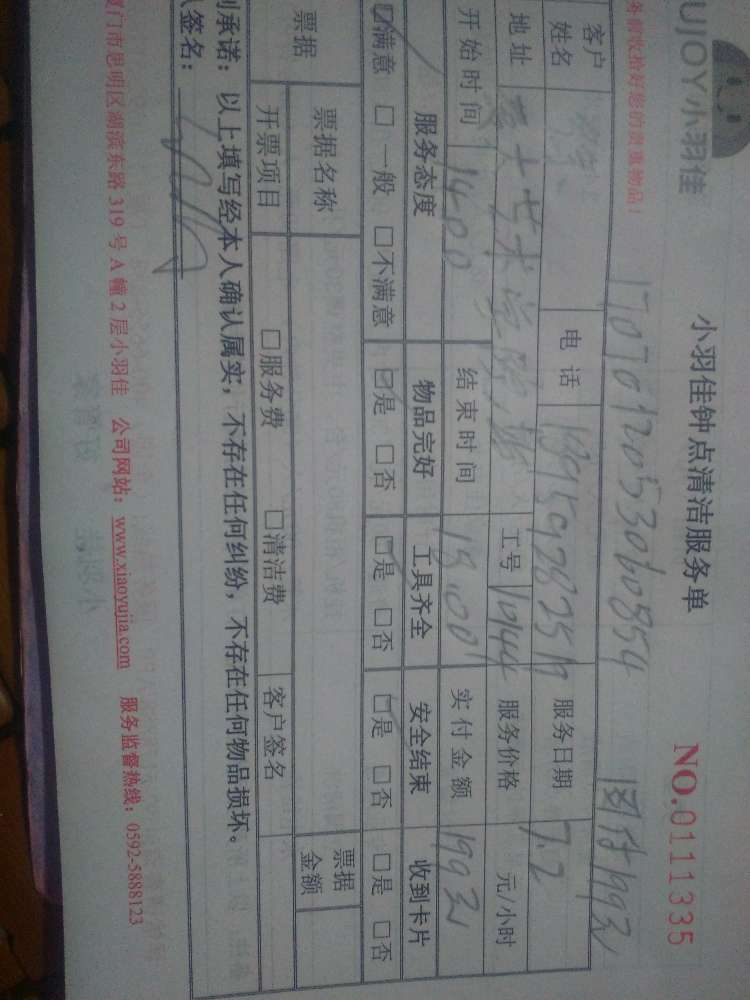 UJOY小羽佳
小羽佳钟点清洁服务单
NO.0111335
务前收拾好您的贵重物品!
1707012053060854 团付199元
客户姓名 电话 服务日期 7.2
地址 工号 1044 服务价格 元/小时
开始时间 14:00 结束时间 18:00 实付金额 199元
服务态度 物品完好 工具齐全 安全结束 收到卡片
☑满意 □一般 □不满意 ☑是 □否 ☑是 □否 ☑是 □否 □是 □否
票据 票据名称 票据金额
开票项目 □服务费 □清洁费 客户签名
承诺:以上填写经本人确认属实,不存在任何纠纷,不存在任何物品损坏。
签名:
厦门市思明区湖滨东路319号A幢2层小羽佳 公司网站:www.xiaoyujia.com 服务监督热线:0592-5888123